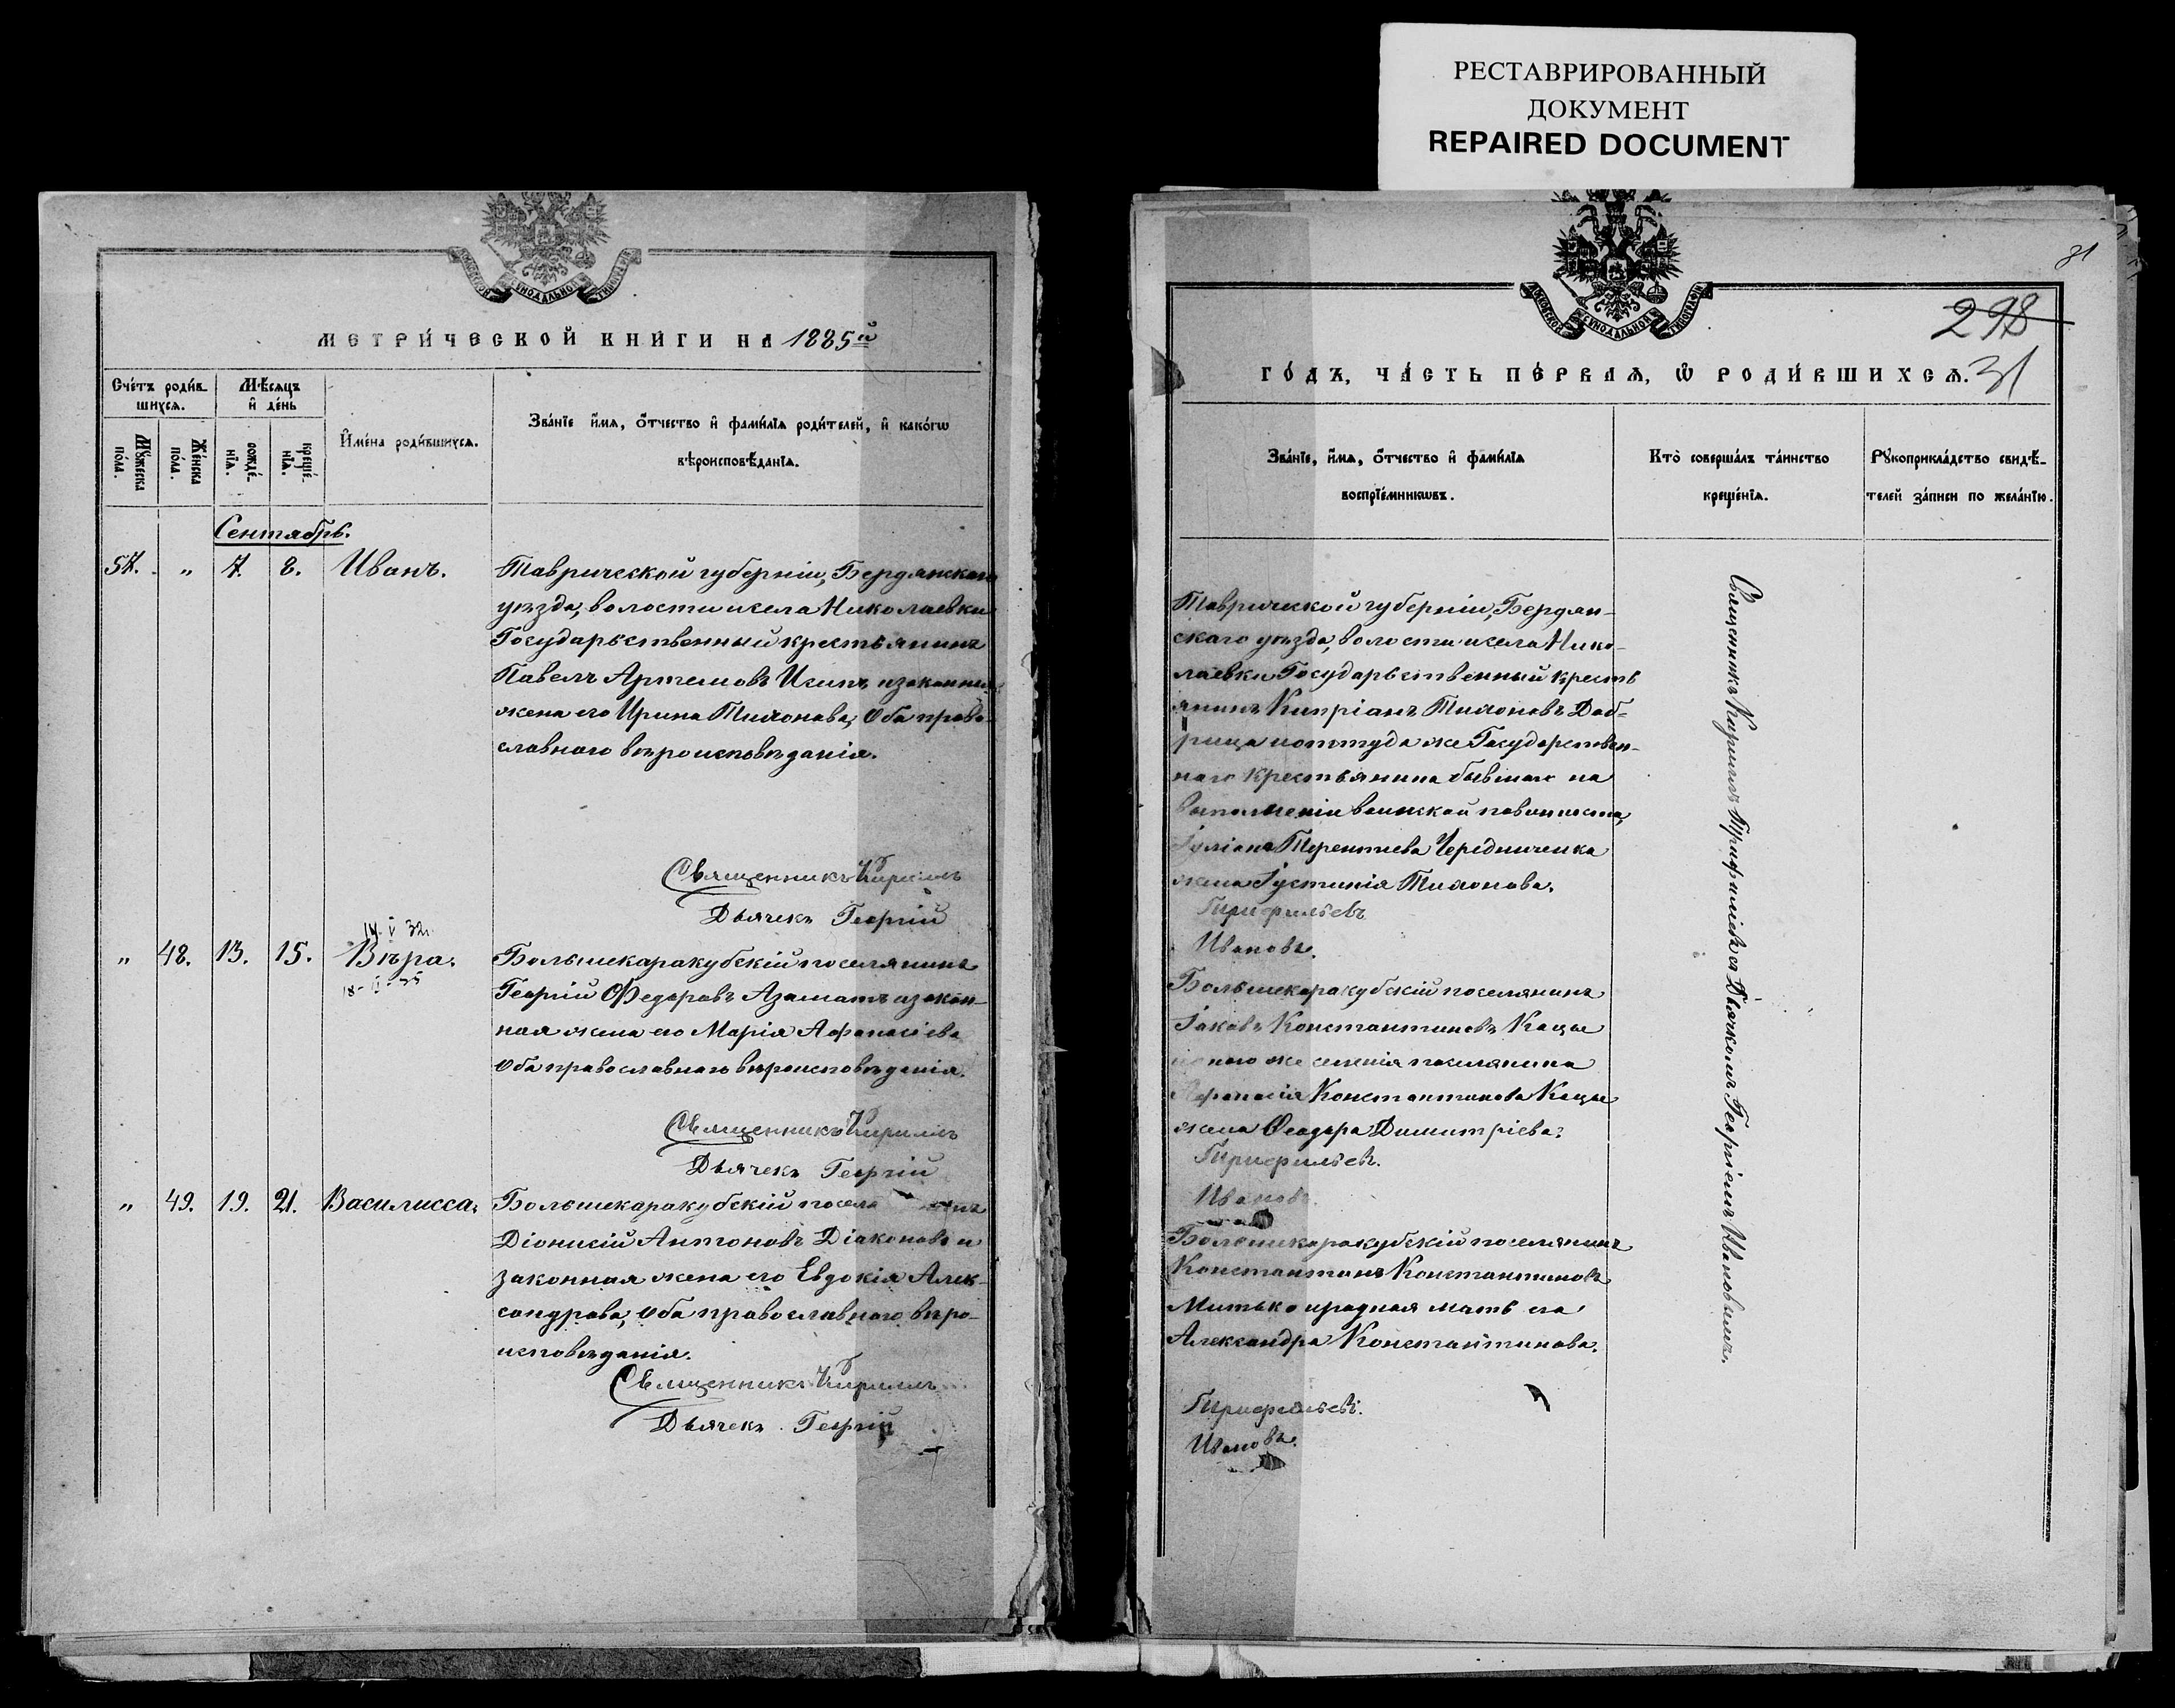 РЕСТАВРИРОВАННЫЙ
ДОКУМЕНТ
REPAIRED DOCUMENT
МЕТРИ́ЧЕСКОЙ КНИ́ГИ НА 1885й
Сче́тъ роди́в
шихся.
Мѣ́сяцъ
и҆ де́нь
Мꙋ́жеска
по́ла.
Же́нска
по́ла.
рожде́-
нїѧ.
креще́-
нїѧ.
И҆мена̀ роди́вшихся.
Зва́нїе и҆́мя, ѻ҆́тчество и҆ фами́лїя роди́телей, и҆ како́гѡ
вѣроисповѣ́данїя.
Сентябрь.
57. „ 7. 8. Иванъ.
Таврической губерніи, Бердянскаго
уѣзда, волости и села Николаевки
Государьственный крестьянинъ
Павелъ Артемовъ и законная
жена его Ирина Тихонова, Оба право-
славнаго вѣроисповѣданія.
Священникъ Кириллъ
Дьячекъ Георгій
„ 48. 13. 15. Вѣра.
Большекаракубскій поселянинъ
Георгій Ѳедоровъ Азаматъ и закон-
ная жена его Марія Афанасіева
Оба православнаго вѣроисповѣданія.
Священникъ Кириллъ
Дьячекъ Георгій
„ 49. 19. 21. Василисса.
Большекаракубскій
Діонисій Антоновъ Діаконовъ и
законная жена его Евдокія Алек-
сандрова, Оба православнаго вѣро-
исповѣданія.
Священникъ Кириллъ
Дьячекъ Георгій
31
298
31
ГО́ДЪ, ЧА́СТЬ ПЕ́РВАѦ, Ѽ РОДИ́ВШИХСѦ.
Зва́нїе, и҆́мя, ѻ҆́тчество и҆ фами́лїя
воспрїе́мникѡвъ.
Кто̀ соверша́лъ та́инство
креще́нїя.
Рꙋкоприкла́дство свидѣ́-
телей за́писи по жела́нїю.
Таврической губерніи, Бердян-
скаго уѣзда, волости и села Нико-
лаевки Государьственный кресть
янинъ Кипріанъ Тихоновъ Доб-
рица и оттуда же Государствен-
наго крестьянина бывшаго на
выполненіи воинской повинности,
Терентиева Чередниченка
жена Іустинія Тихонова.
Трифильевъ
Ивановъ.
Большекаракубскій поселянинъ
Іаковъ Константиновъ Кацы
и того же селенія поселянина
Афанасія Константинова Кацы
жена Ѳеодора Димитріева.
Трифильевъ.
Ивановъ.
Большекаракубскій поселянинъ
Константинъ Константиновъ
Митько и родная мать его
Александра Константинова.
Трифильевъ.
Ивановъ.
Священникъ Кириллъ Трифиліевъ съ Дьячкомъ Георгіемъ Ивановымъ.